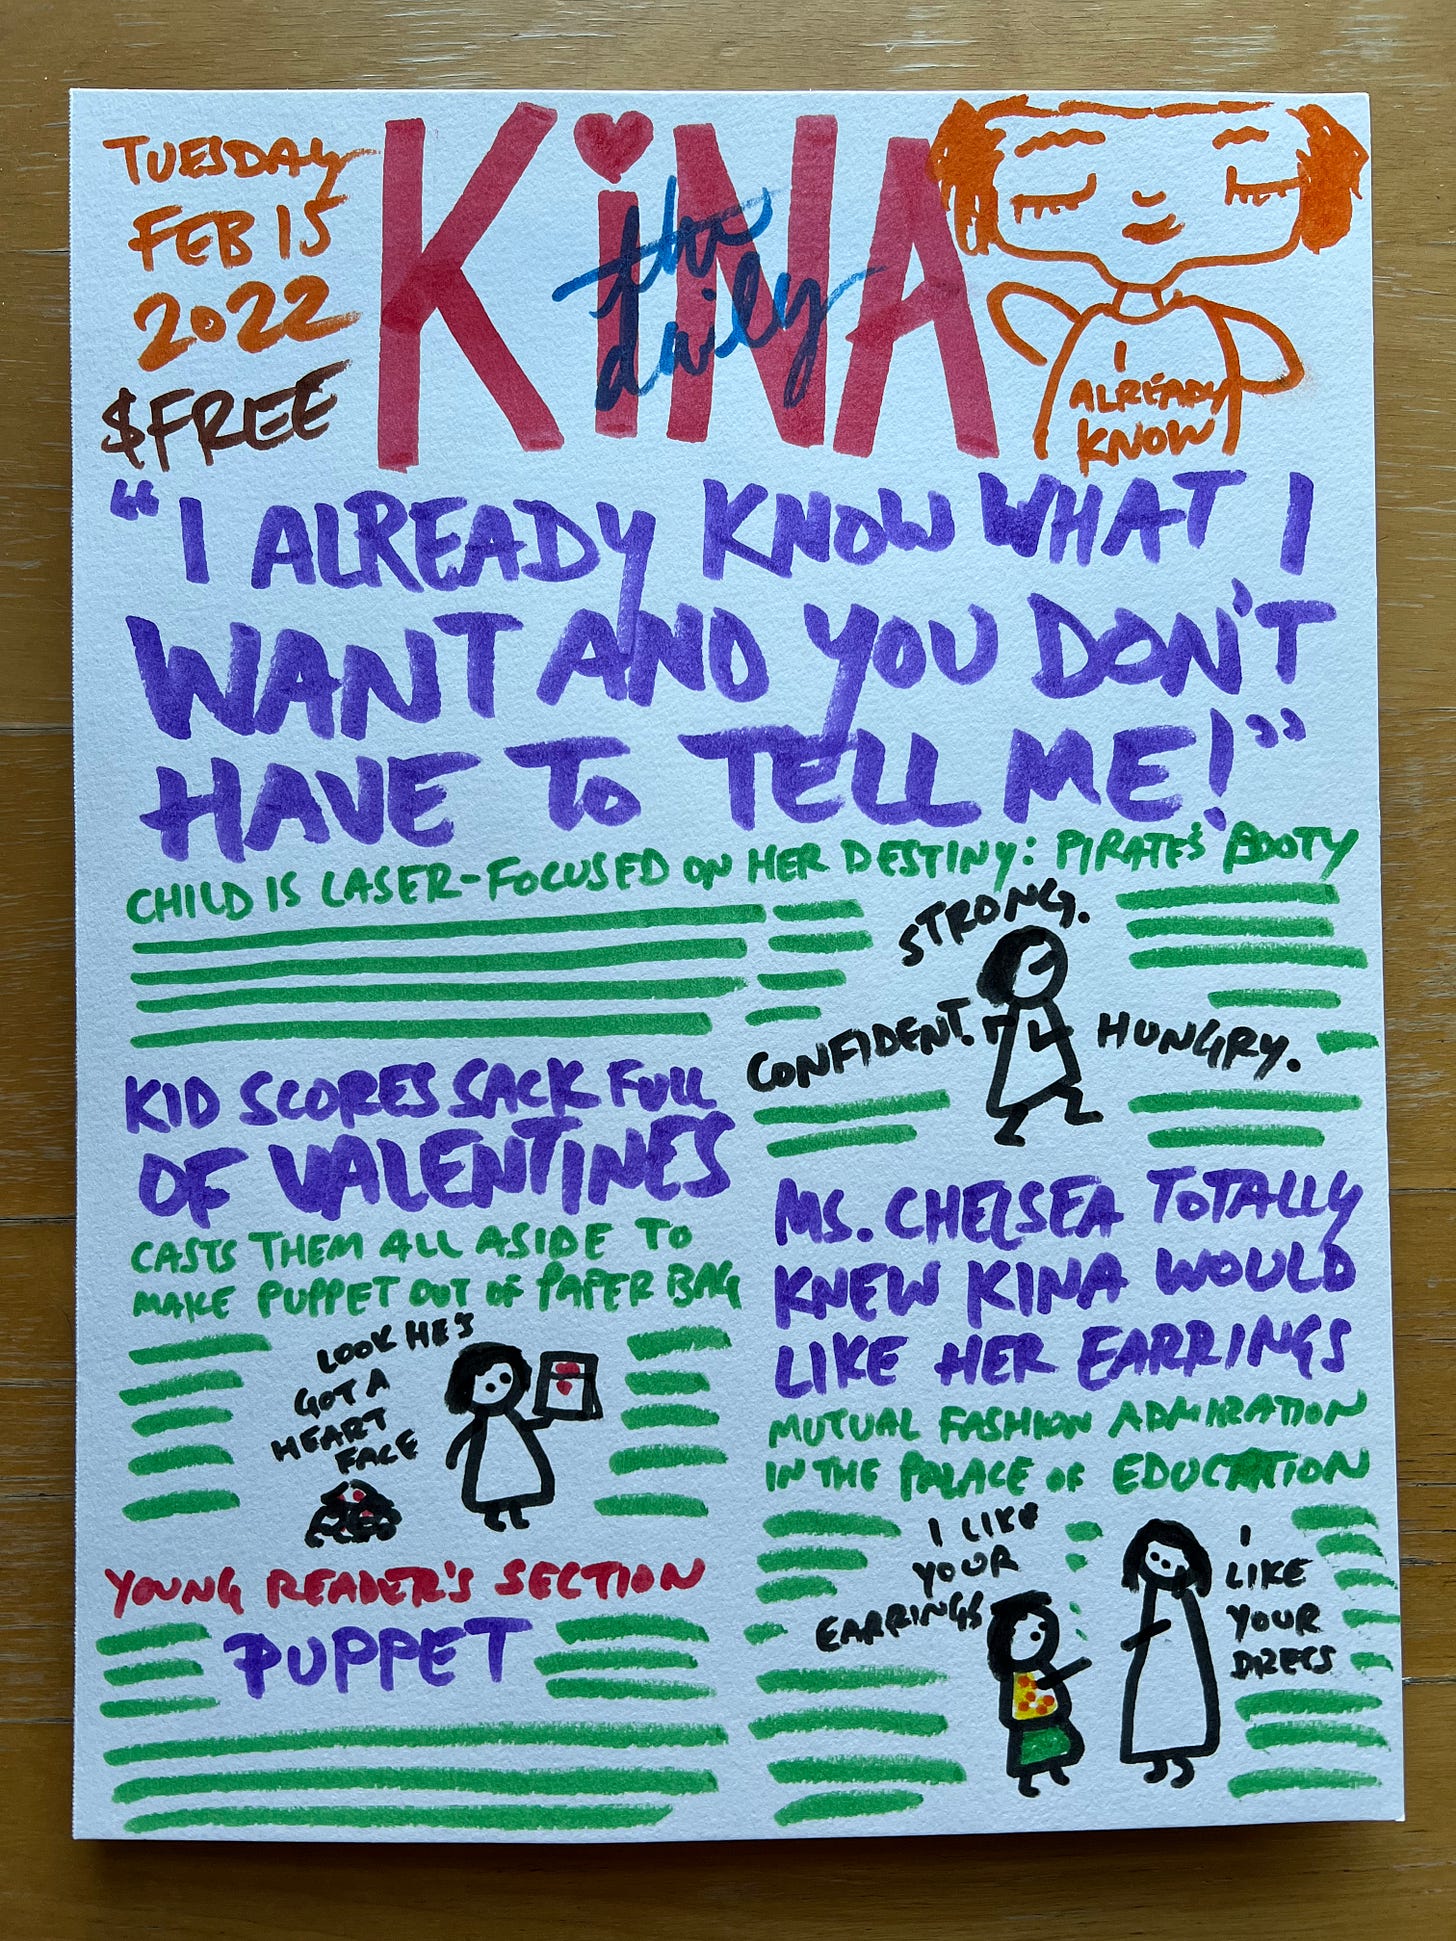 TUESDAY
FEB 15
2022
$FREE
the
daily
KiNA
I
ALREADY
KNOW
"I ALREADY KNOW WHAT I
WANT AND YOU DON'T
HAVE TO TELL ME!"
CHILD IS LASER-FOCUSED ON HER DESTINY: PIRATE'S BOOTY
STRONG.
CONFIDENT.
HUNGRY.
KID SCORES SACK FULL
OF VALENTINES
CASTS THEM ALL ASIDE TO
MAKE PUPPET OUT OF PAPER BAG
LOOK HE'S
GOT A
HEART
FACE
YOUNG READER'S SECTION
PUPPET
MS. CHELSEA TOTALLY
KNEW KINA WOULD
LIKE HER EARRINGS
MUTUAL FASHION ADMIRATION
IN THE PALACE OF EDUCATION
I LIKE
YOUR
EARRINGS
I
LIKE
YOUR